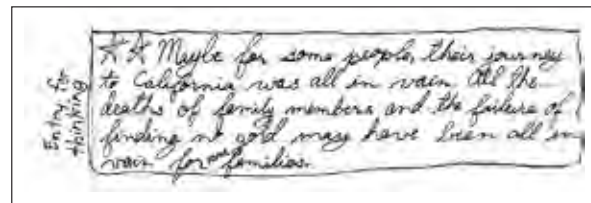 Entry to
thinking
☆☆ Maybe for some people, their journey
to California was all in vain. All the
deaths of family members and the failure of
finding no gold may have been all in
vain for families.